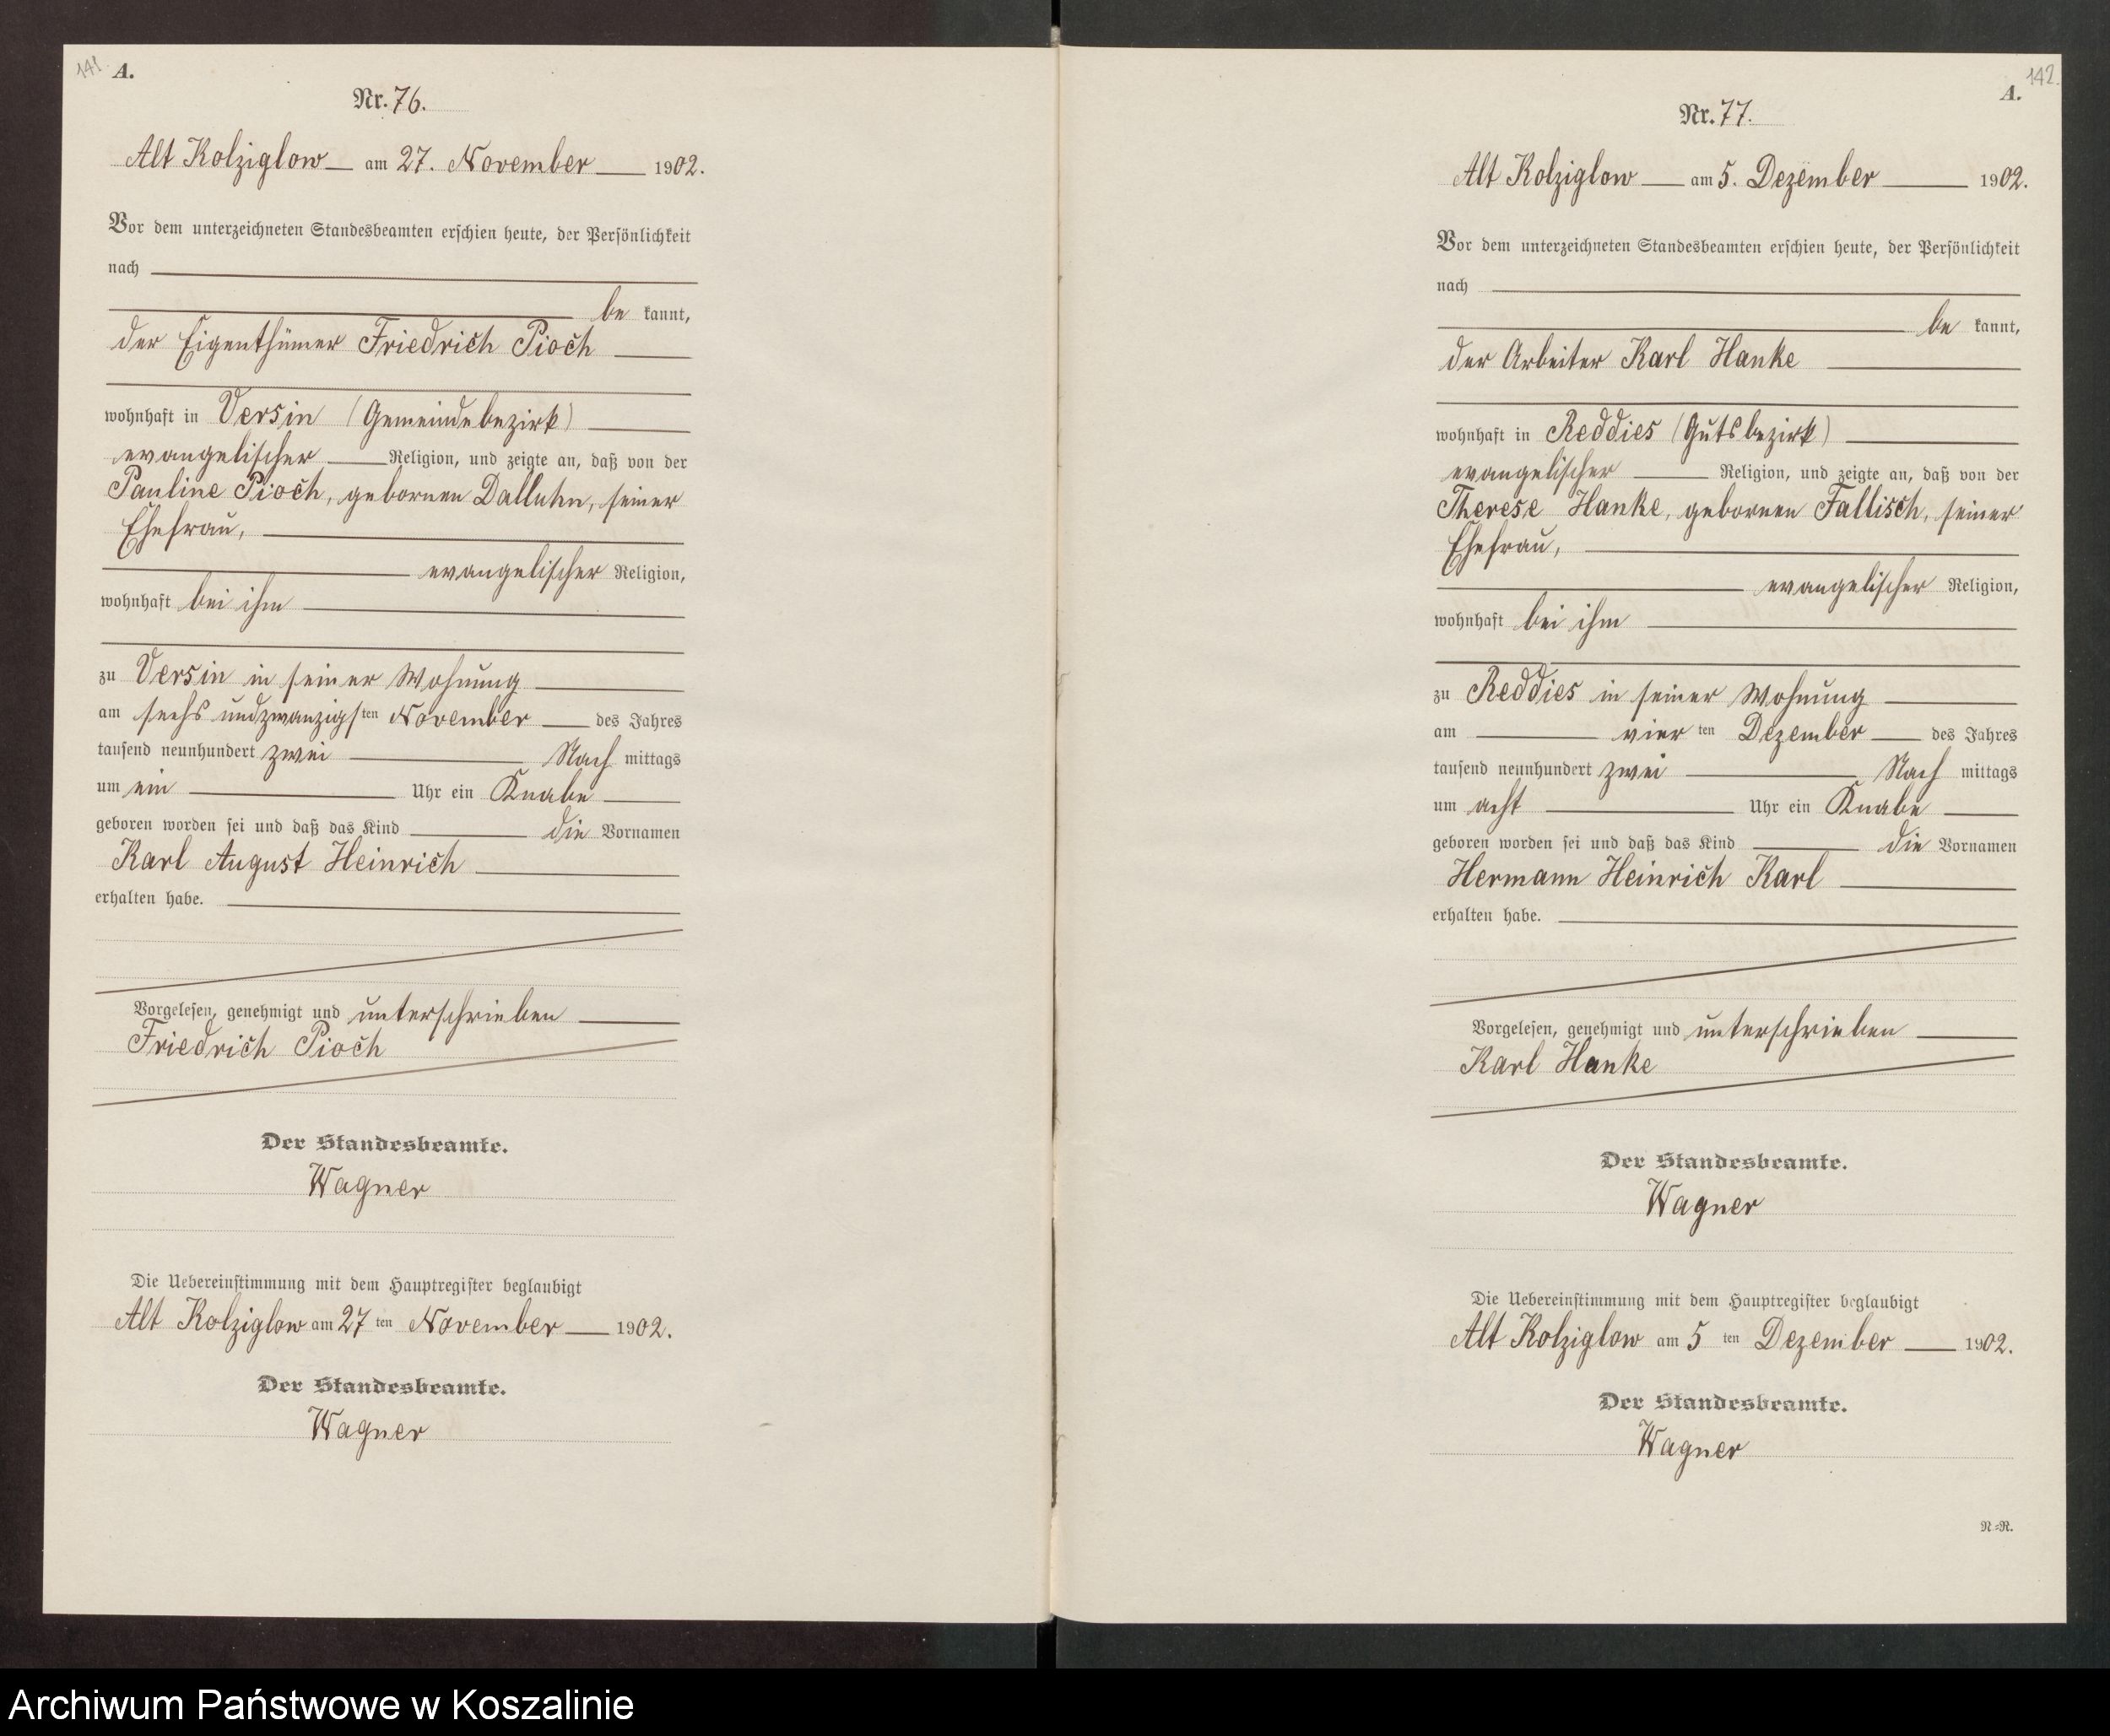 141 A.
Nr. 76.
Alt Kolziglow am 27. November 1902.
Vor dem unterzeichneten Standesbeamten erschien heute, der Persönlichkeit
nach
be kannt,
der Eigenthümer Friedrich Pioch
wohnhaft in Versin (Gemeindebezirk)
evangelischer Religion, und zeigte an, daß von der
Pauline Pioch, gebornen Dalluhn, seiner
Ehefrau,
evangelischer Religion,
wohnhaft bei ihm
zu Versin in seiner Wohnung
am sechs undzwanzigsten November des Jahres
tausend neunhundert zwei Nach mittags
um ein Uhr ein Knabe
geboren worden sei und daß das Kind die Vornamen
Karl August Heinrich
erhalten habe.
Vorgelesen, genehmigt und unterschrieben
Friedrich Pioch
Der Standesbeamte.
Wagner
Die Uebereinstimmung mit dem Hauptregister beglaubigt
Alt Kolziglow am 27 ten November 1902.
Der Standesbeamte.
Wagner
142.
A.
Nr. 77.
Alt Kolziglow am 5. Dezember 1902.
Vor dem unterzeichneten Standesbeamten erschien heute, der Persönlichkeit
nach
be kannt,
der Arbeiter Karl Hanke
wohnhaft in Reddies (Gutsbezirk)
evangelischer Religion, und zeigte an, daß von der
Therese Hanke, gebornen Fallisch, seiner
Ehefrau,
evangelischer Religion,
wohnhaft bei ihm
zu Reddies in seiner Wohnung
am vier ten Dezember des Jahres
tausend neunhundert zwei Nach mittags
um acht Uhr ein Knabe
geboren worden sei und daß das Kind die Vornamen
Hermann Heinrich Karl
erhalten habe.
Vorgelesen, genehmigt und unterschrieben
Karl Hanke
Der Standesbeamte.
Wagner
Die Uebereinstimmung mit dem Hauptregister beglaubigt
Alt Kolziglow am 5 ten Dezember 1902.
Der Standesbeamte.
Wagner
N=R.
Archiwum Państwowe w Koszalinie